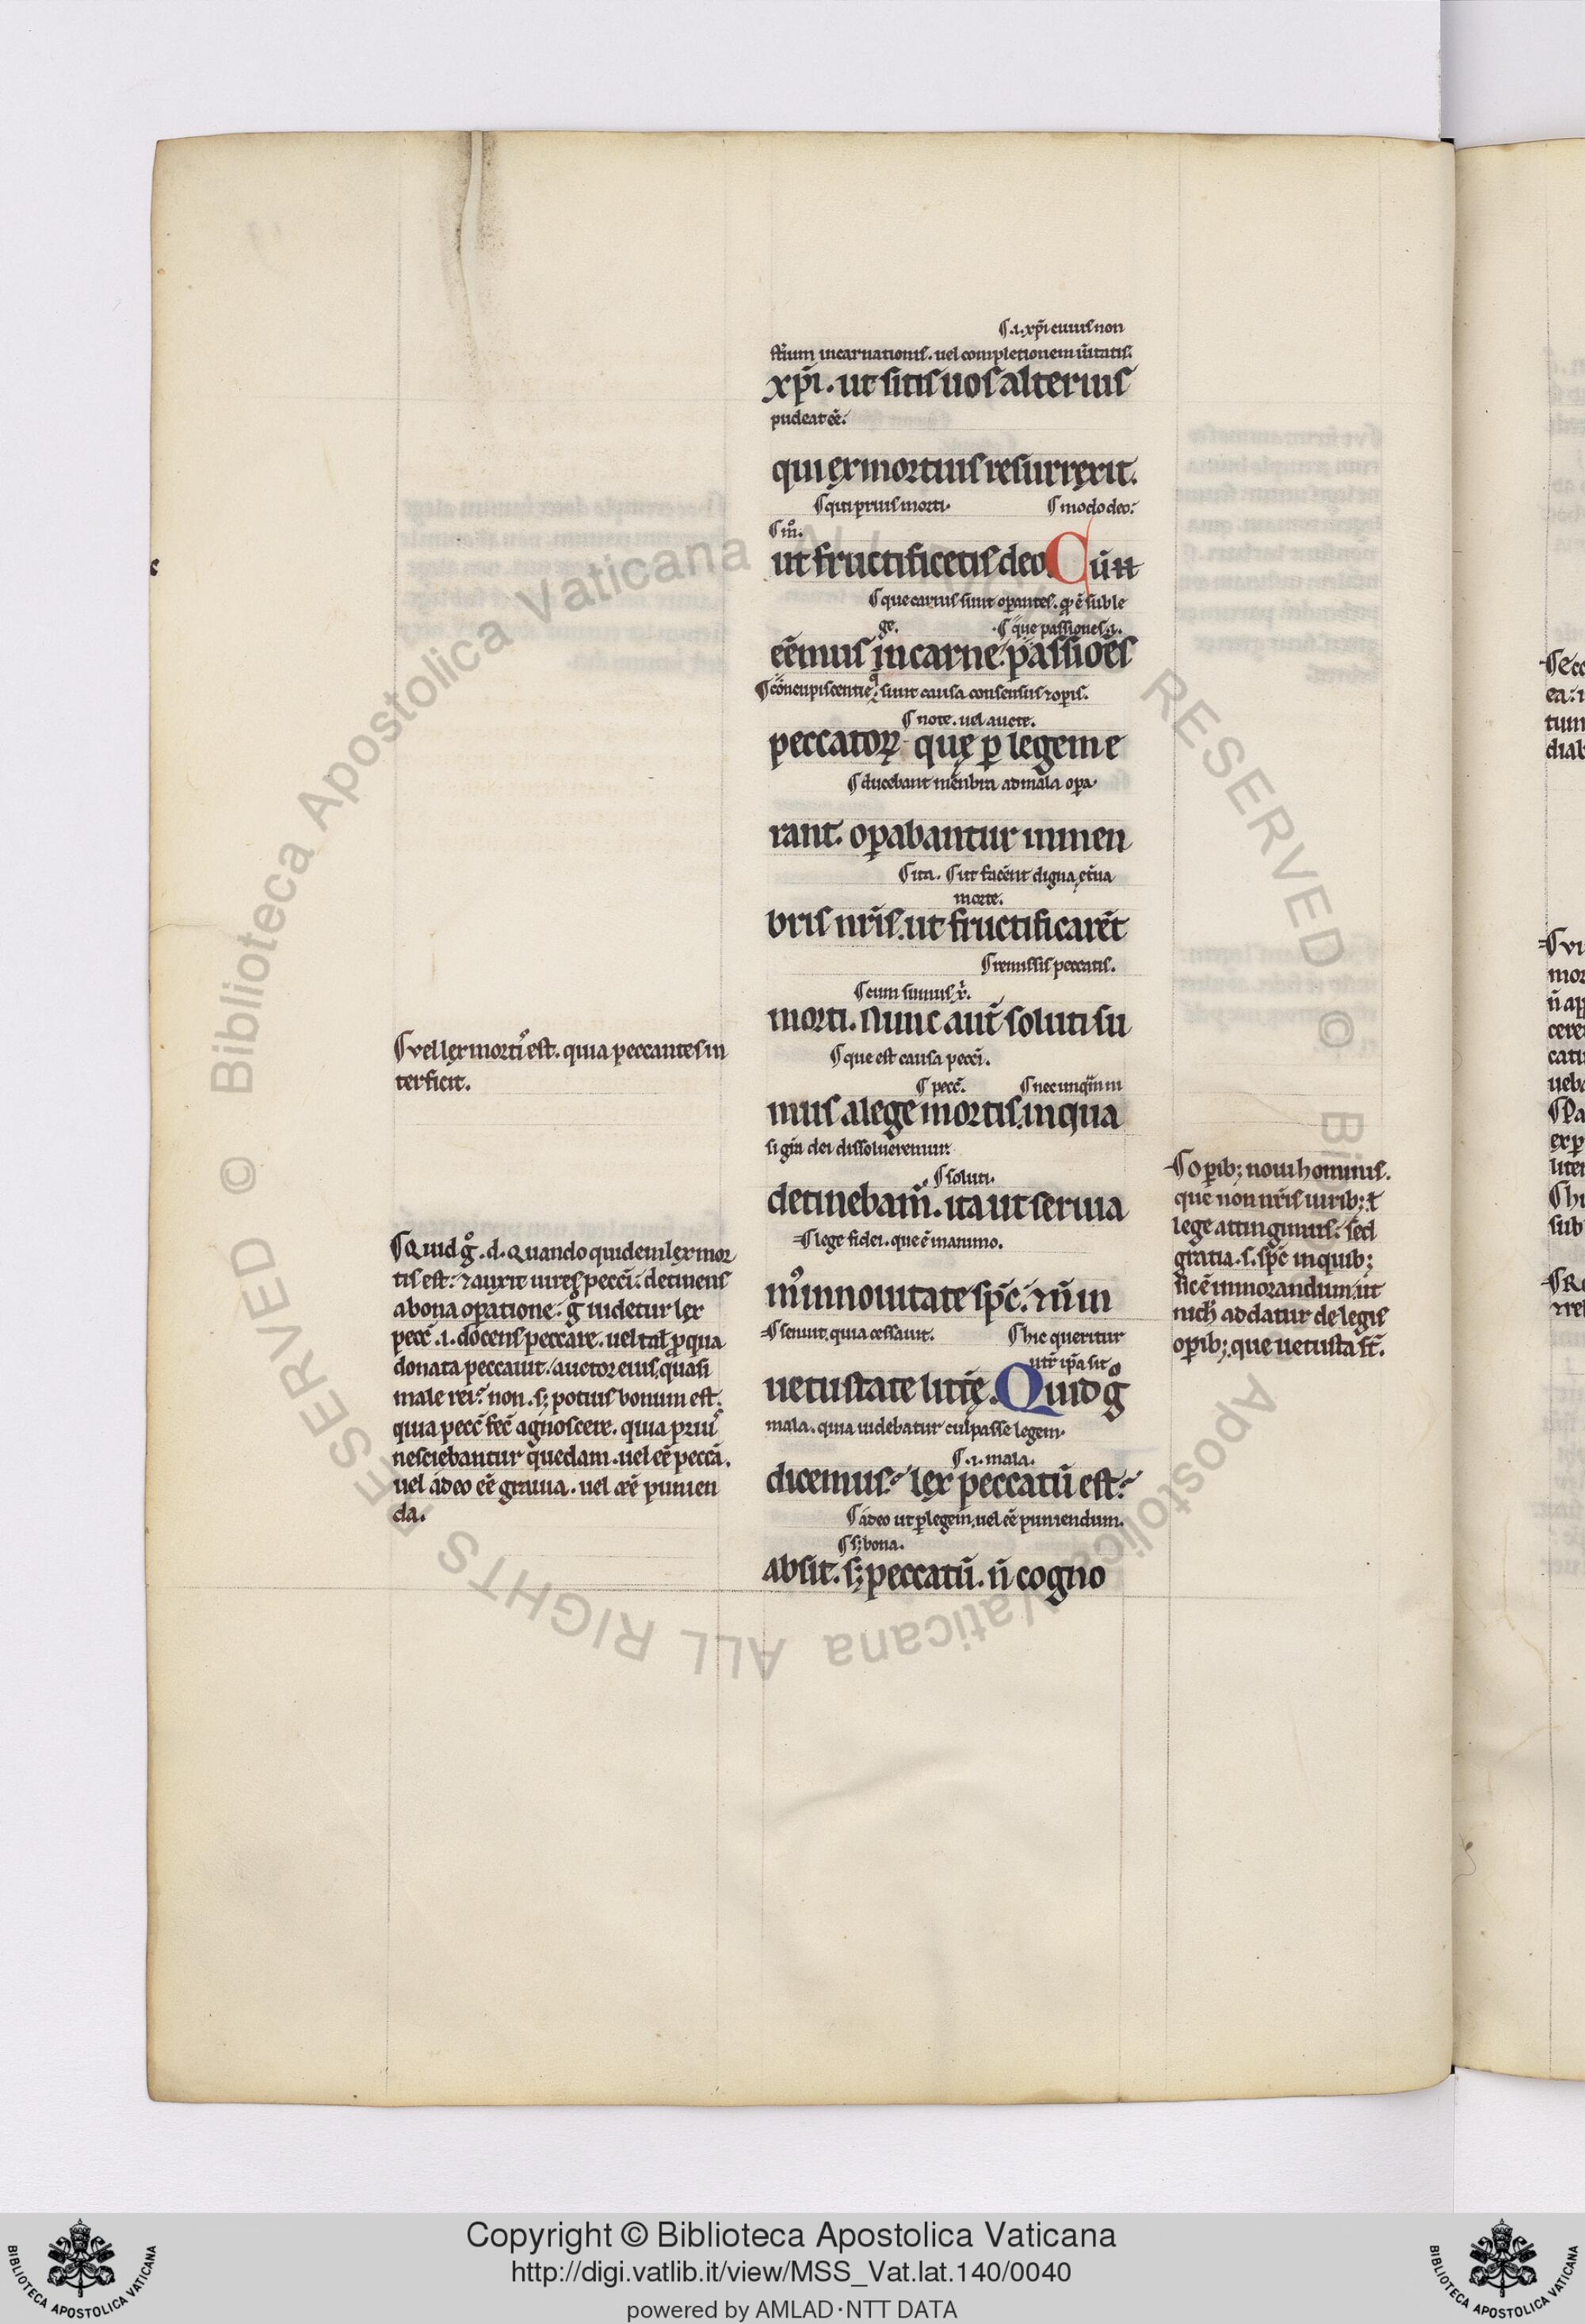 ¶ .i. xp̄i cuius non
st̄ium incarnationis. uel completionem ūitatis.
xp̄i. ut sitis uos alterius
pudeat eē.
qui ex mortuis resurrexit.
¶ qui prius morti. ¶ modo deo.
¶ m̊.
ut fructificetis deo. Cūn
¶ que carnis sunt oꝑantes. qḋ ē sub le
ge. ¶ que passiones .i.
eēmus in carne. passioēs
¶ concupiscentie. q̄ sunt causa consensus ⁊ oꝑis.
¶ note. uel aucte.
peccatoꝝ quę ꝑ legem e
¶ ducebant menbra ad mala oꝑa.
rant. oꝑabantur in men
¶ ita. ¶ ut facent digna et̄na
morte.
bris nr̄is. ut fructificarēt
¶ remissis peccatis.
¶ cum sumus x̄.
morti. Nunc aut̄ soluti su
¶ que est causa pecci.
¶ pecc̄. ¶ nec unqͣm ni
mus a lege mortis. in qua
si gr̄a dei dissolueremur.
¶ soluti.
detinebam̄. ita ut seruia
¶ lege fidei. que ē in animo.
mꝰ in nouitate sp̄c. ⁊ n̄ in
¶ senuit. quia cessauit. ¶ hic queritur
utr̄ ip̄a sit
uetustate litt̄ę. Quid g̊
mala. quia uidebatur culpasse legem.
¶ .i. mala.
dicemus. lex peccatū est.
¶ adeo ut ꝑ legem. uel eē puniendum.
¶ sꝫ bona.
absit. sꝫ peccatū. n̄ cogno
¶ vel lex mortꝰ est. quia peccantes in
terficit.
¶ Quid g̊. d. Quando quidem lex mor
tis est. ⁊ auxit uires pecci. detinens
a bona oꝑatione. g̊ uidetur lex
pecc̄ .i. docens peccare. uel tal̄ ꝓ qua
donata peccauit. auctor eius quasi
male rei. non. sꝫ potius bonum est.
quia pecc̄ fec̄ agnoscere. quia priuꝰ
nesciebantur quedam. uel eē pecca.
uel adeo eē grauia. uel eē punien
da.
¶ Oꝑibꝫ noui hominis.
que non nr̄is uiribꝫ ł
lege attingimus. sed
gratia .s. sp̄c in quibꝫ
sic ē inmorandum. ut
nich̄ addatur de legis
oꝑibꝫ. que uetusta st̄.
Copyright © Biblioteca Apostolica Vaticana
http://digi.vatlib.it/view/MSS_Vat.lat.140/0040
powered by AMLAD·NTT DATA
BIBLIOTECA APOSTOLICA VATICANA
BIBLIOTECA APOSTOLICA VATICANA
© Biblioteca Apostolica Vaticana ALL RIGHTS RESERVED © Biblioteca Apostolica Vaticana ALL RIGHTS RESERVED